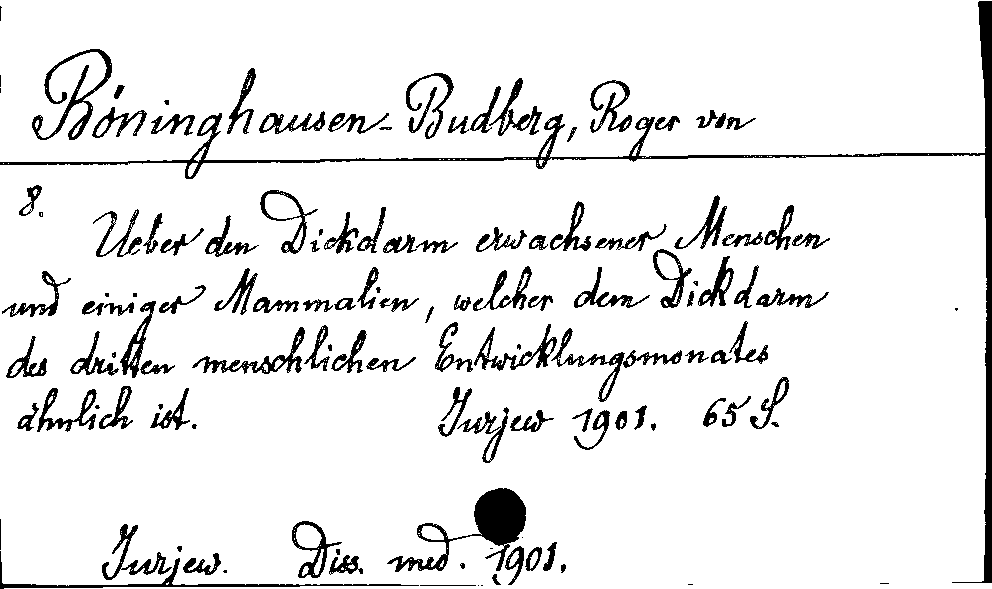 Böninghausen-Budberg, Roger von
8.
Ueber den Dickdarm erwachsener Menschen
und einiger Mammalien, welcher dem Dickdarm
des dritten menschlichen Entwicklungsmonates
ähnlich ist. Jurjew 1901. 65 S.
Jurjew. Diss. med. 1901.